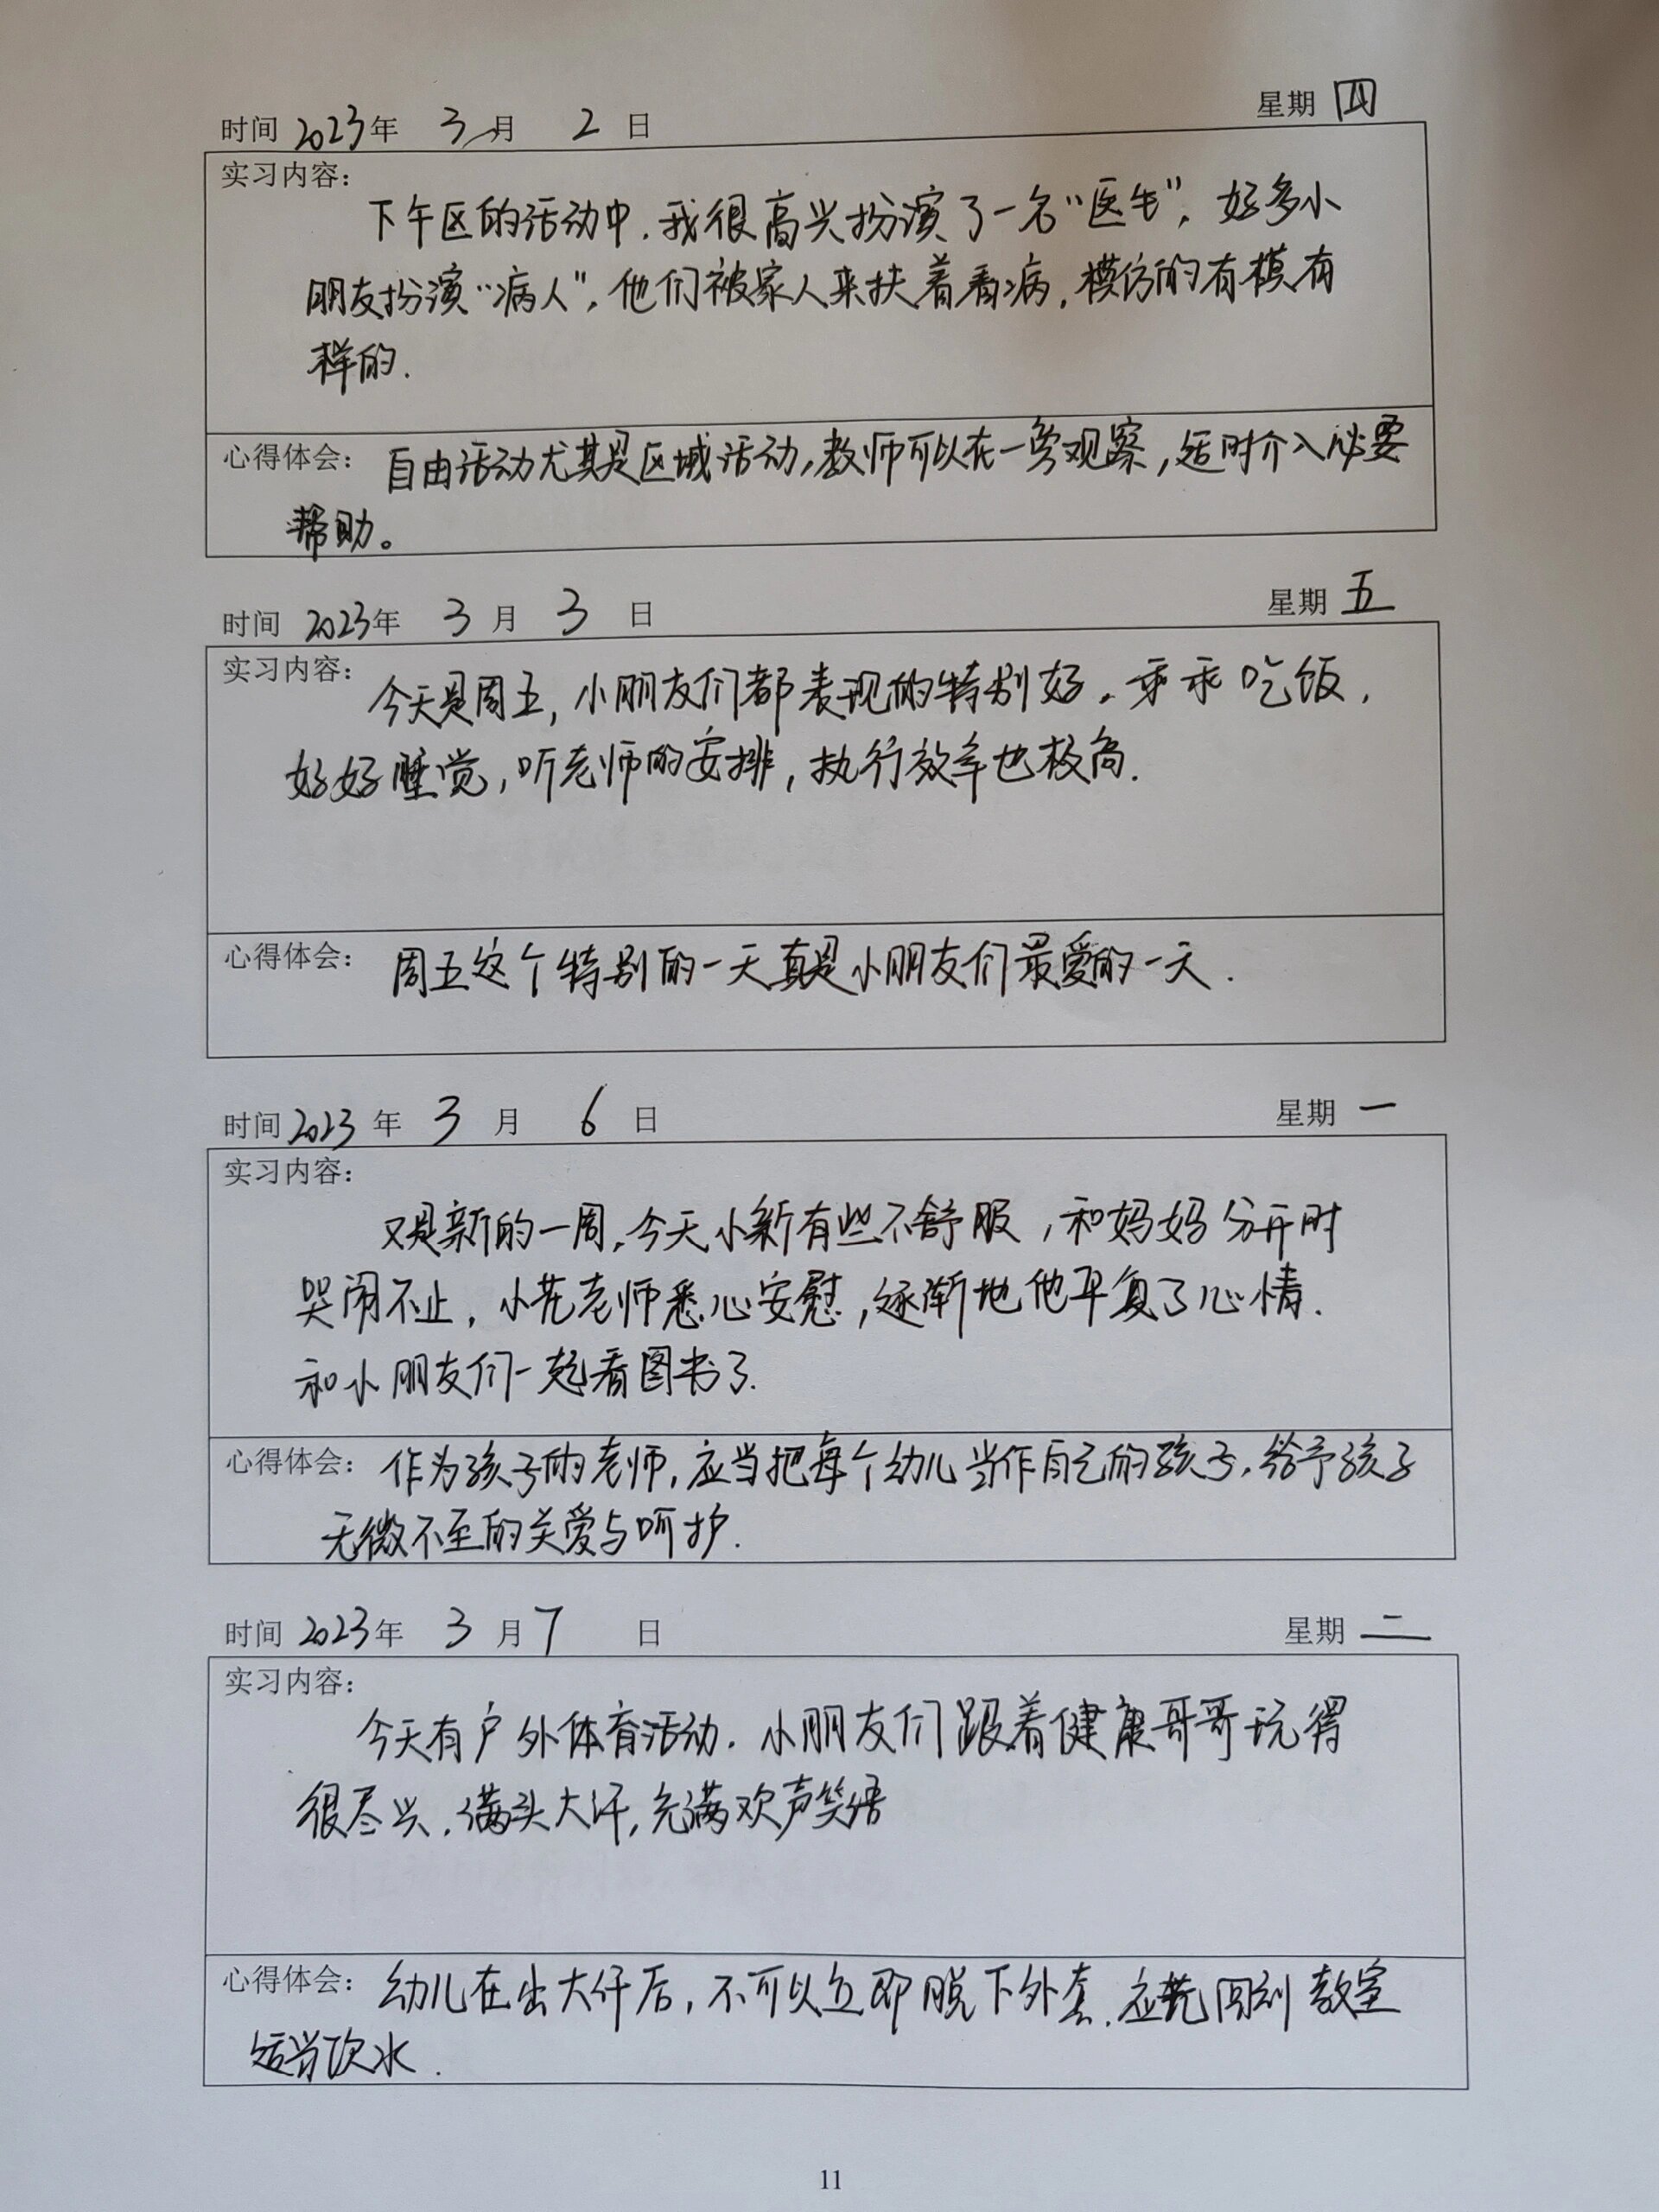 时间 2023年 3月 2日 星期 四
实习内容：
下午区的活动中，我很高兴扮演了一名“医生”，好多小
朋友扮演“病人”，他们被家人来扶着看病，模仿的有模有
样的．
心得体会： 自由活动尤其是区域活动，教师可以在一旁观察，适时介入必要
帮助。
时间 2023年 3月 3日 星期 五
实习内容：
今天是周五，小朋友们都表现的特别好，乖乖吃饭，
好好睡觉，听老师的安排，执行效率也极高．
心得体会： 周五这个特别的一天真是小朋友们最爱的一天．
时间 2023年 3月 6日 星期 一
实习内容：
又是新的一周，今天小新有些不舒服，和妈妈分开时
哭闹不止，小花老师悉心安慰，逐渐地他平复了心情．
和小朋友们一起看图书了．
心得体会： 作为孩子的老师，应当把每个幼儿当作自己的孩子，给予孩子
无微不至的关爱与呵护．
时间 2023年 3月 7日 星期 二
实习内容：
今天有户外体育活动．小朋友们跟着健康哥哥玩得
很尽兴，满头大汗，充满欢声笑语
心得体会： 幼儿在出大汗后，不可以立即脱下外套，应先回到教室
适当饮水．
11